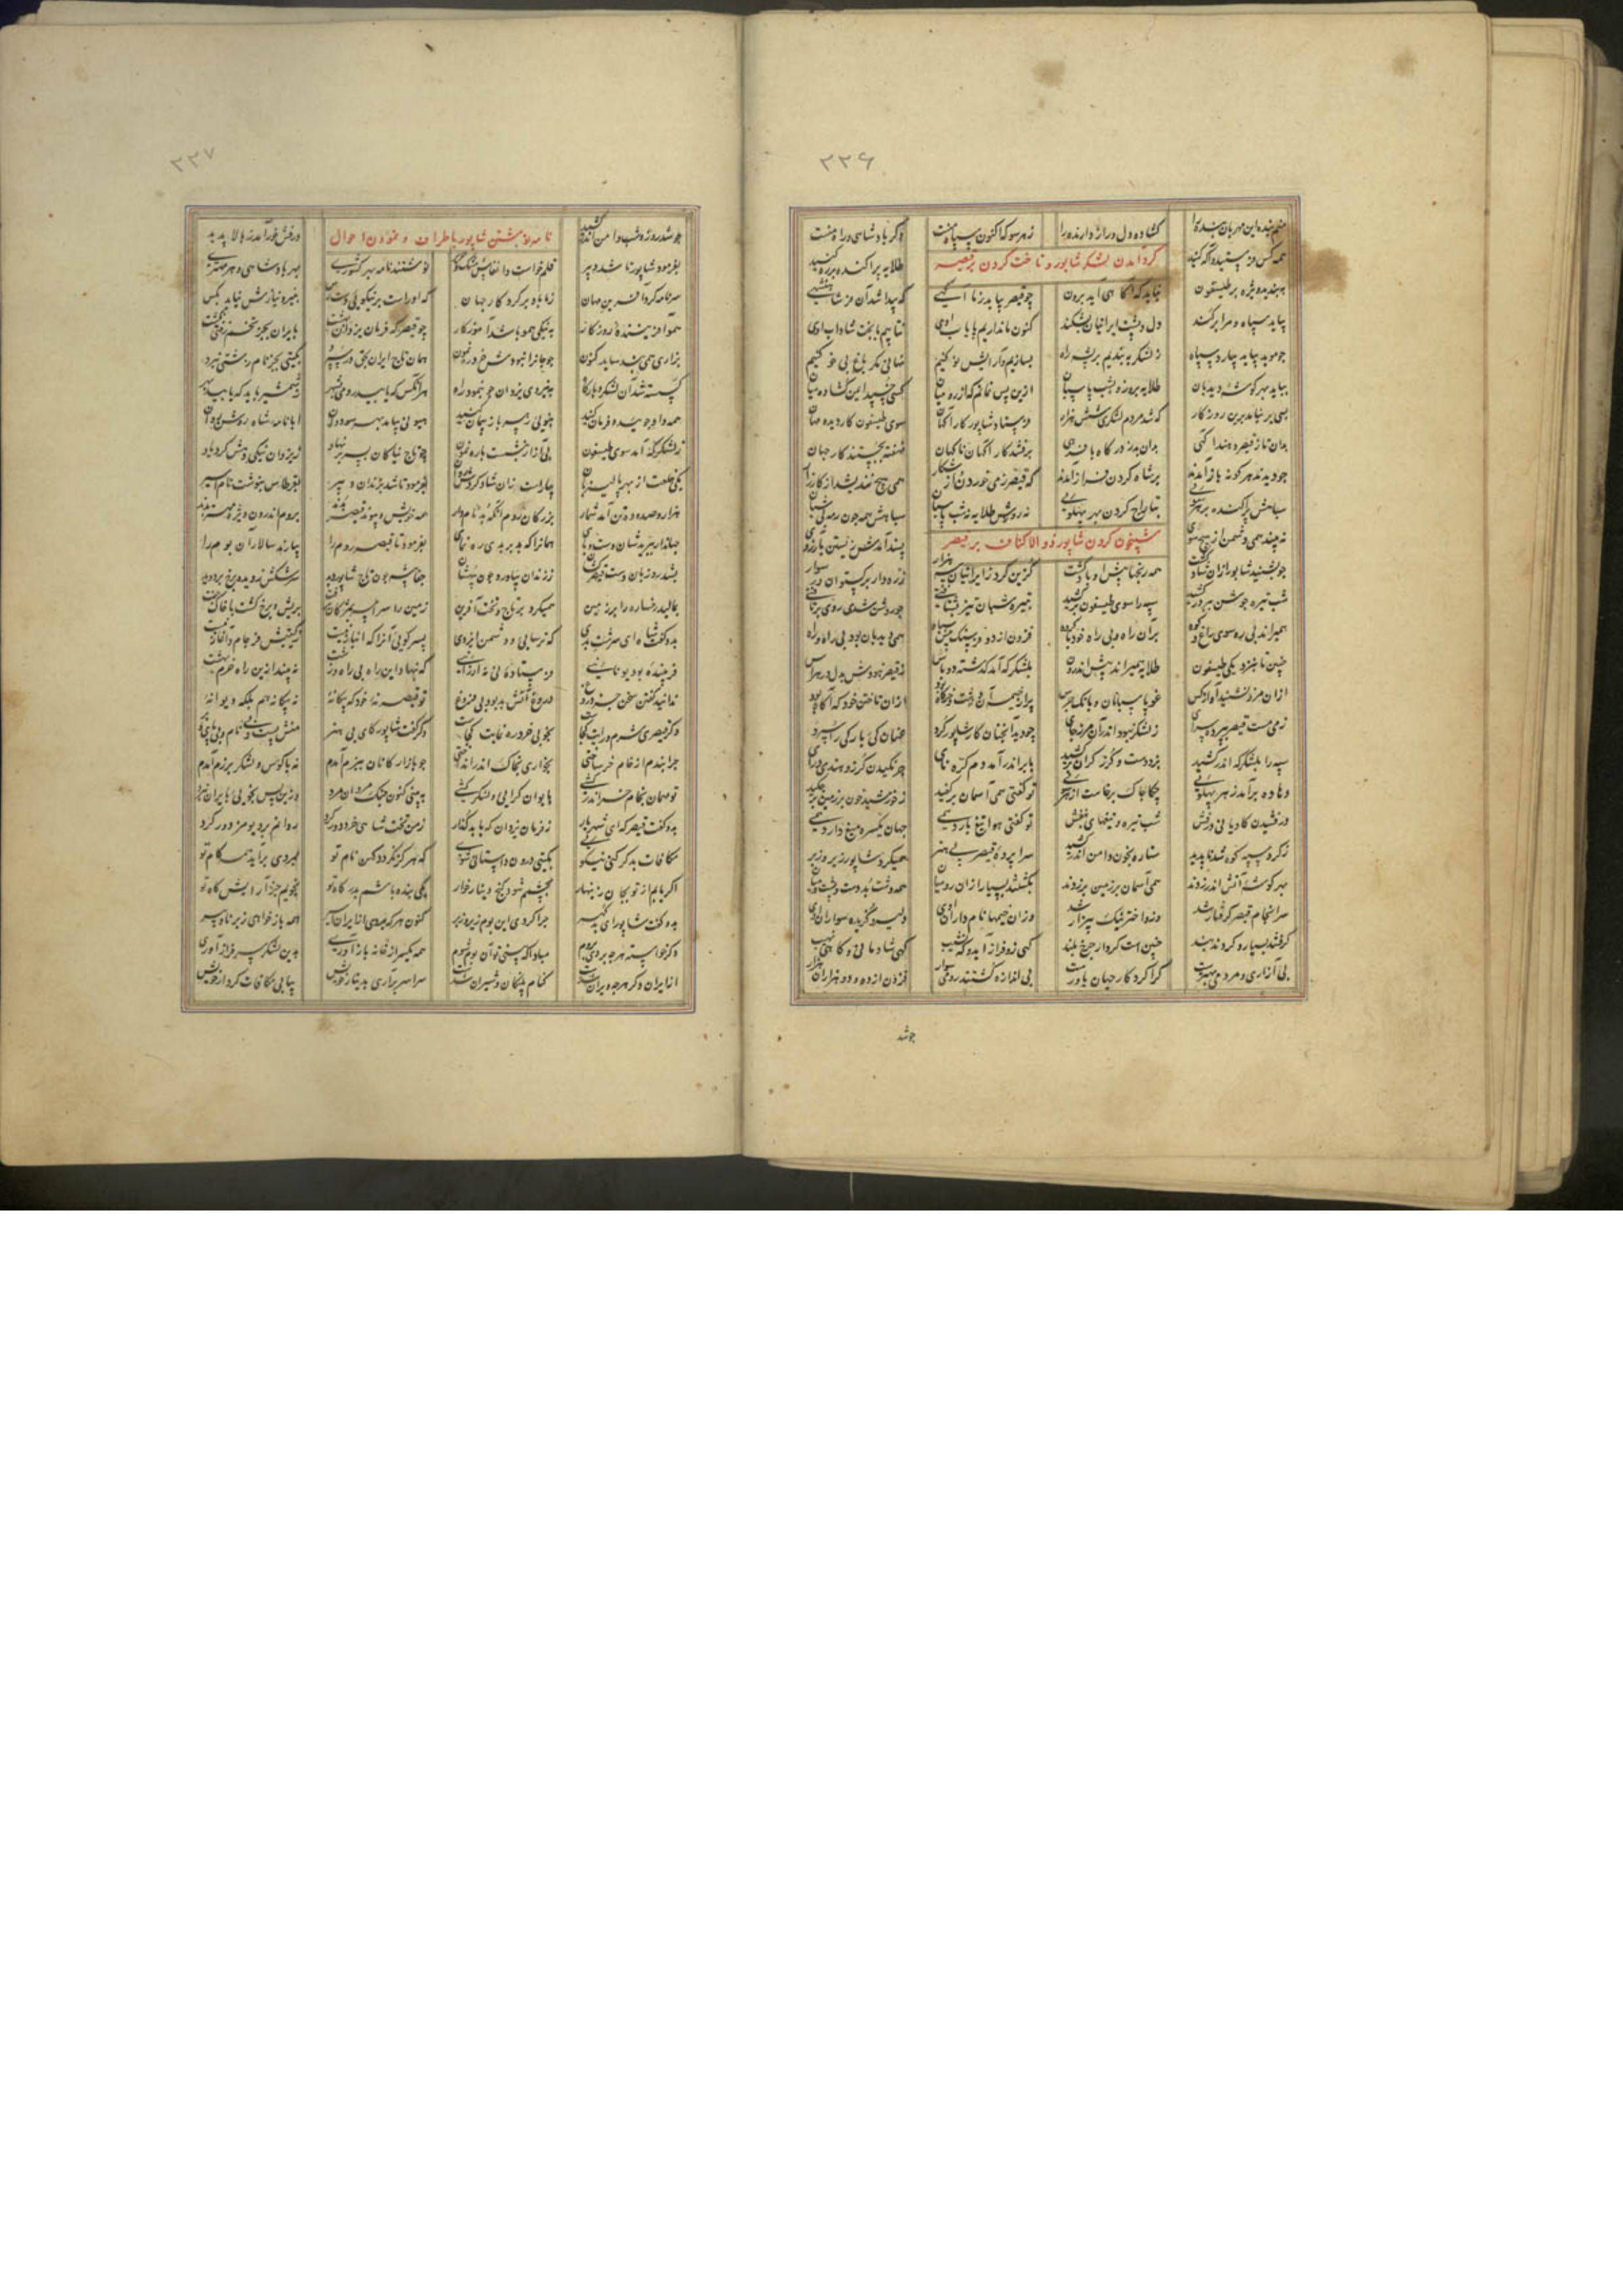 ۲۲۶
کشاده دل و راز دارنده را زهر سو که اکنون سپاه منست وگر پادشاهی و راه منست
همه کس فرستید و آگه کنید طلایه پراکنده بر ره کنید
گرد آمدن لشکر شاپور و تاخت کردن بر قیصر
ببندید ویژه بر طیسفون نباید که آگاهی آید برون چو قیصر بیابد ز ما آگهی که پیدا شد آن فر شاهنشهی
بیاید سپاه مرا برکند دل و پشت ایرانیان بشکند کنون ما نداریم پایاب اوی نتابیم با بخت شاداب اوی
چو موبد بیاید بیارد سپاه ز لشکر ببندیم بر پشه راه بسازیم و آرایش نو کنیم نهانی مگر باغ بی خو کنیم
بباید بهر گوشه دیدبان طلایه بروز و بشب پاسبان ازین پس نمانم که از رومیان کسی خسپد ایمن گشاده میان
بسی بر نیامد برین روزگار که شد مردم لشکری شش هزار فرستاد شاپور کارآگهان سوی طیسفون کاردیده مهان
بدان تا ز قیصر دهند آگهی بدان برز درگاه با فرهی برفتند کارآگهان ناگهان نهفته بجستند کار جهان
چو دیدند هر گونه باز آمدند بر شاه گردن فراز آمدند که قیصر ز می خوردن و از شکار همی هیچ نندیشد از کارزار
سپاهش پراکنده بر هر سوئی بتاراج کردن بهر پهلوئی نه روزش طلایه نه شب پاسبان سپاهش همه چون رمه بی شبان
نه بیند همی دشمن از هیچ سوی پسند آمدش زیستن بآرزوی
شبیخون کردن شاپور ذو الاکتاف بر قیصر
چو بشنید شاپور ازان شاد گشت همه رنجها پیش او باد گشت گزین کرد ز ایرانیان سه هزار زره دار برگستوان ور سوار
شب تیره جوشن ببر در کشید سپه را سوی طیسفون برکشید
همی دیدبان بود بی راه و راه
چنین تا بنزدیکی طیسفون طلایه همیراند پیش اندرون بلشکر گه آمد گذشته دو پاس ز قیصر نبودش بدل در هراس
ازان مرز نشنید آواز کس غو پاسبانان و بانگ جرس پر از خیمه آن دشت و خرگاه بود ازان تاختن خود که آگاه بود
ز می مست قیصر بپرده سرای ز لشکر نبود اندر آن مرز جای چو دید آنچنان کار شاپور گرد عنان کئی بارگی را سپرد
سپه را بلشکرگه اندر کشید بزد دست و گرز گران برکشید بابر اندر آمد دم کره نای جرنگیدن گرز و هندی درای
دهاده برآمد ز هر پهلوئی چکاچاک برخاست از هر سوئی تو گفتی همی آسمان برکفید ز خورشید خون بر زمین بر چکید
درفشیدن کاویانی درفش شب تیره و تیغهای بنفش تو گفتی هوا تیغ بارد همی جهان یکسره میغ دارد همی
ز گرد سپه کوه شد ناپدید ستاره بخون دامن اندر کشید سراپرده قیصر بی هنر همیکرد شاپور زیر و زبر
بهر گوشه آتش اندر زدند همی آسمان بر زمین بر زدند بکشتند بسیار ازان رومیان
سرانجام قیصر گرفتار شد وزو اختر نیک بیزار شد وزان خیمها نام داران اوی دلیر و گزیده سواران اوی
گرفتند بسیار و کردند بند چنین است کردار چرخ بلند گهی زو فراز آید و گه نشیب گهی شادمانی و گاهی نهیب
بی آزاری و مردمی بهترست کرا کردگار جهان یاورست بی اندازه کشتند رومی سوار فزون از ده و دو هزاران هزار
چو شد
۲۲۷
چو شد روز و شب دامن اندر کشید درفش خور آمد ز بالا پدید
نامه نوشتن شاپور باطراف و نمودن احوال
بفرمود شاپور تا شد دبیر قلم خواست و انقاس و مشک و حریر نوشتند نامه بهر کشوری بهر پادشاهی و هر مهتری
سر نامه کرد آفرین مهان ز ما باد بر کردگار جهان که اوراست بر نیکوئی دست رس بنیرو نیازش نیاید بکس
همو آفریننده روزگار به نیکی همو باشد آموزگار چو قیصر که فرمان یزدان بهشت بایران بجز تخم زفتی نکشت
بزاری همی بند ساید کنون چو جانرا نبودش خرد رهنمون همان تاج ایران بدو در سپرد بگیتی بجز نام زشتی نبرد
گسسته شد آن لشکر و بارگاه به نیروی یزدان چو بنمود راه هر آنکس که یابید رومی بشهر ز شمشیر باید که یابند بهر
همه داد جوئید و فرمان کنید بخوبی ز سر باز پیمان کنید هیونی بیامد بهر سو دوان ابا نامه شاه روشن روان
ز لشکرگه آمد سوی طیسفون بی آزار بنشست با رهنمون چو تاج نیاکان بسر بر نهاد ز یزدان نیکی دهش کرد یاد
بفرمود تا شد بزندان دبیر بقرطاس بنوشت نام اسیر
هزار و صد و ده تن آمد شمار بزرگان روم آنکه بد نام دار همه خویش و پیوند قیصر بدند بروم اندرون ویژه مهتر بدند
جهاندار ببریدشان دست و پای همانرا که بد بر بدی رهنمای بفرمود تا قیصر روم را بیارند سالار آن بوم را
بشد روزبان دست قیصر کشان ز زندان بیاورد چون بیهشان جفا پیشه چون تاج شاپور دید سرشکش ز دیده برخ بر دوید
بمالید رخساره را بر زمین همیکرد بر تاج و تخت آفرین زمین را سراسر بمژگان برفت بریش و برخ گشت با خاک جفت
بدو گفت شاه ای سرشت بدی که ترسایی و دشمن ایزدی پسر گویی آنرا که انباز نیست ز گیتیش فرجام و آغاز نیست
ندانی گفتن سخن جز دروغ دروغ آتش بد بود بی فروغ تو قیصر نه خود که بیگانه نه بیگانه هم بلکه دیوانه
وگر قیصری شرم و رایت کجاست بخوبی خرد رهنمایت کجاست
چرا بندم از خام خر ساختی بخواری بخاک اندر انداختی چو بازارگانان ببزم آمدم نه با کوس و لشکر برزم آمدم
تو مهمان بخام خر اندر کنی بایوان گرایی و لشکر کنی به بینی کنون جنگ مردان مرد
بدو گفت قیصر که ای شهریار ز فرمان یزدان که یابد گذار ز من تخت شاهی خرد دور کرد روانم بر دیو مزدور کرد
مکافات بد گر کنی نیکوئی بگیتی درون داستانی شوی که هرگز نگردد کهن نام تو بمردی برآید همه کام تو
اگر یابم از تو بجان زینهار بچشمم شود گنج و دینار خوار یکی بنده باشم بدرگاه تو نجویم جز آرایش گاه تو
بدو گفت شاپور ای بدگهر چرا کردی این بوم زیر و زبر کنون هرکه بردی از ایران اسیر همه باز خواهی ز بر نا و پیر
دگر خواسته هرچه بردی بروم مبادا که بینی تو آن بوم شوم همه یکسر از خانه باز آوری بدین لشکر سرفراز آوری
از ایران دگر هرچه ویران شدست کنام پلنگان و شیران شدست سراسر برآری بدینار خویش بیابی مکافات کردار خویش